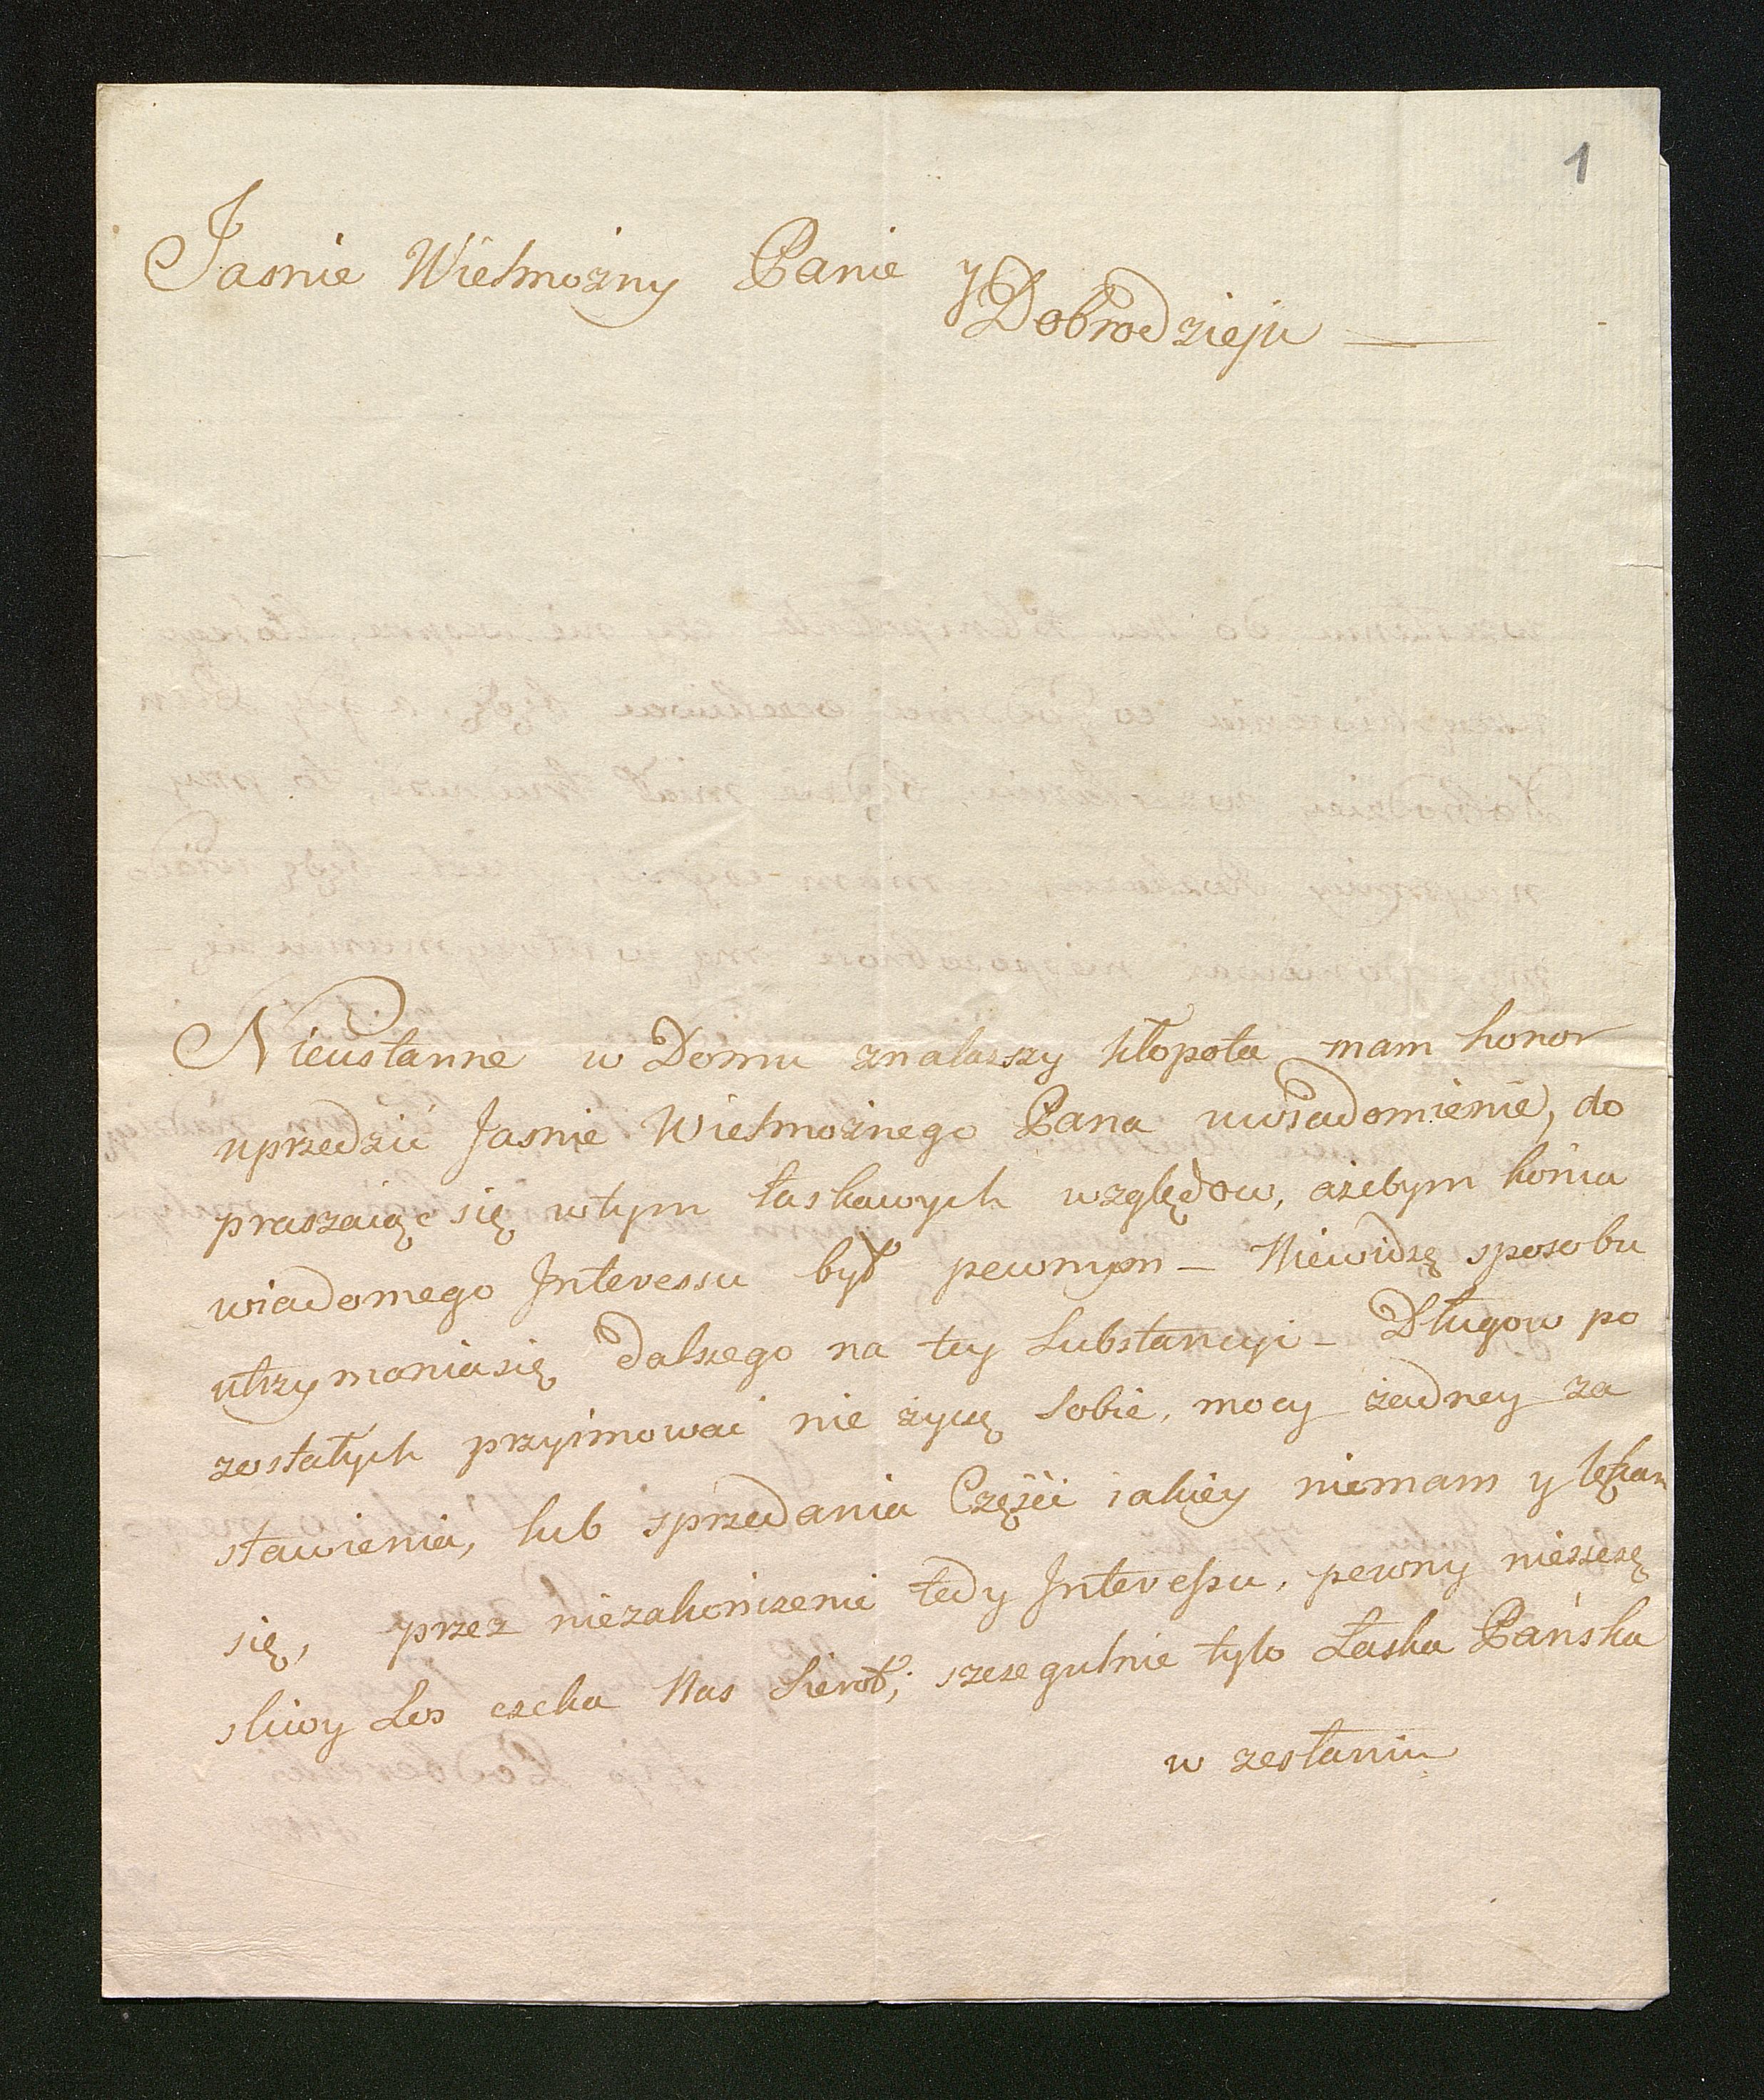 1
Jasnie Wielmożny Panie y
Dobrodzieju —
Nieustanne w Domu znalazszy kłopota mam honor
uprzedzić Jasnie Wielmożnego Pana uwiadomienie, do
praszaiąc się wtym łaskawych względow, ażebym końca
wiadomego Interessu był pewnym - Niewidzę sposobu
utrzymaniasię Dalszego na tey Substancyi - Długow po
zostałych przyimować nie życzę Sobie, mocy żadney za
stawienia, lub sprzedania Częśći iakiey niemam y lękam
się, przez niezakończenie tedy Interessu, pewny nieszczę
sliwy Los czeka Nas Sierot; szczegulnie tylo Łaska Pańska
w zesłaniu